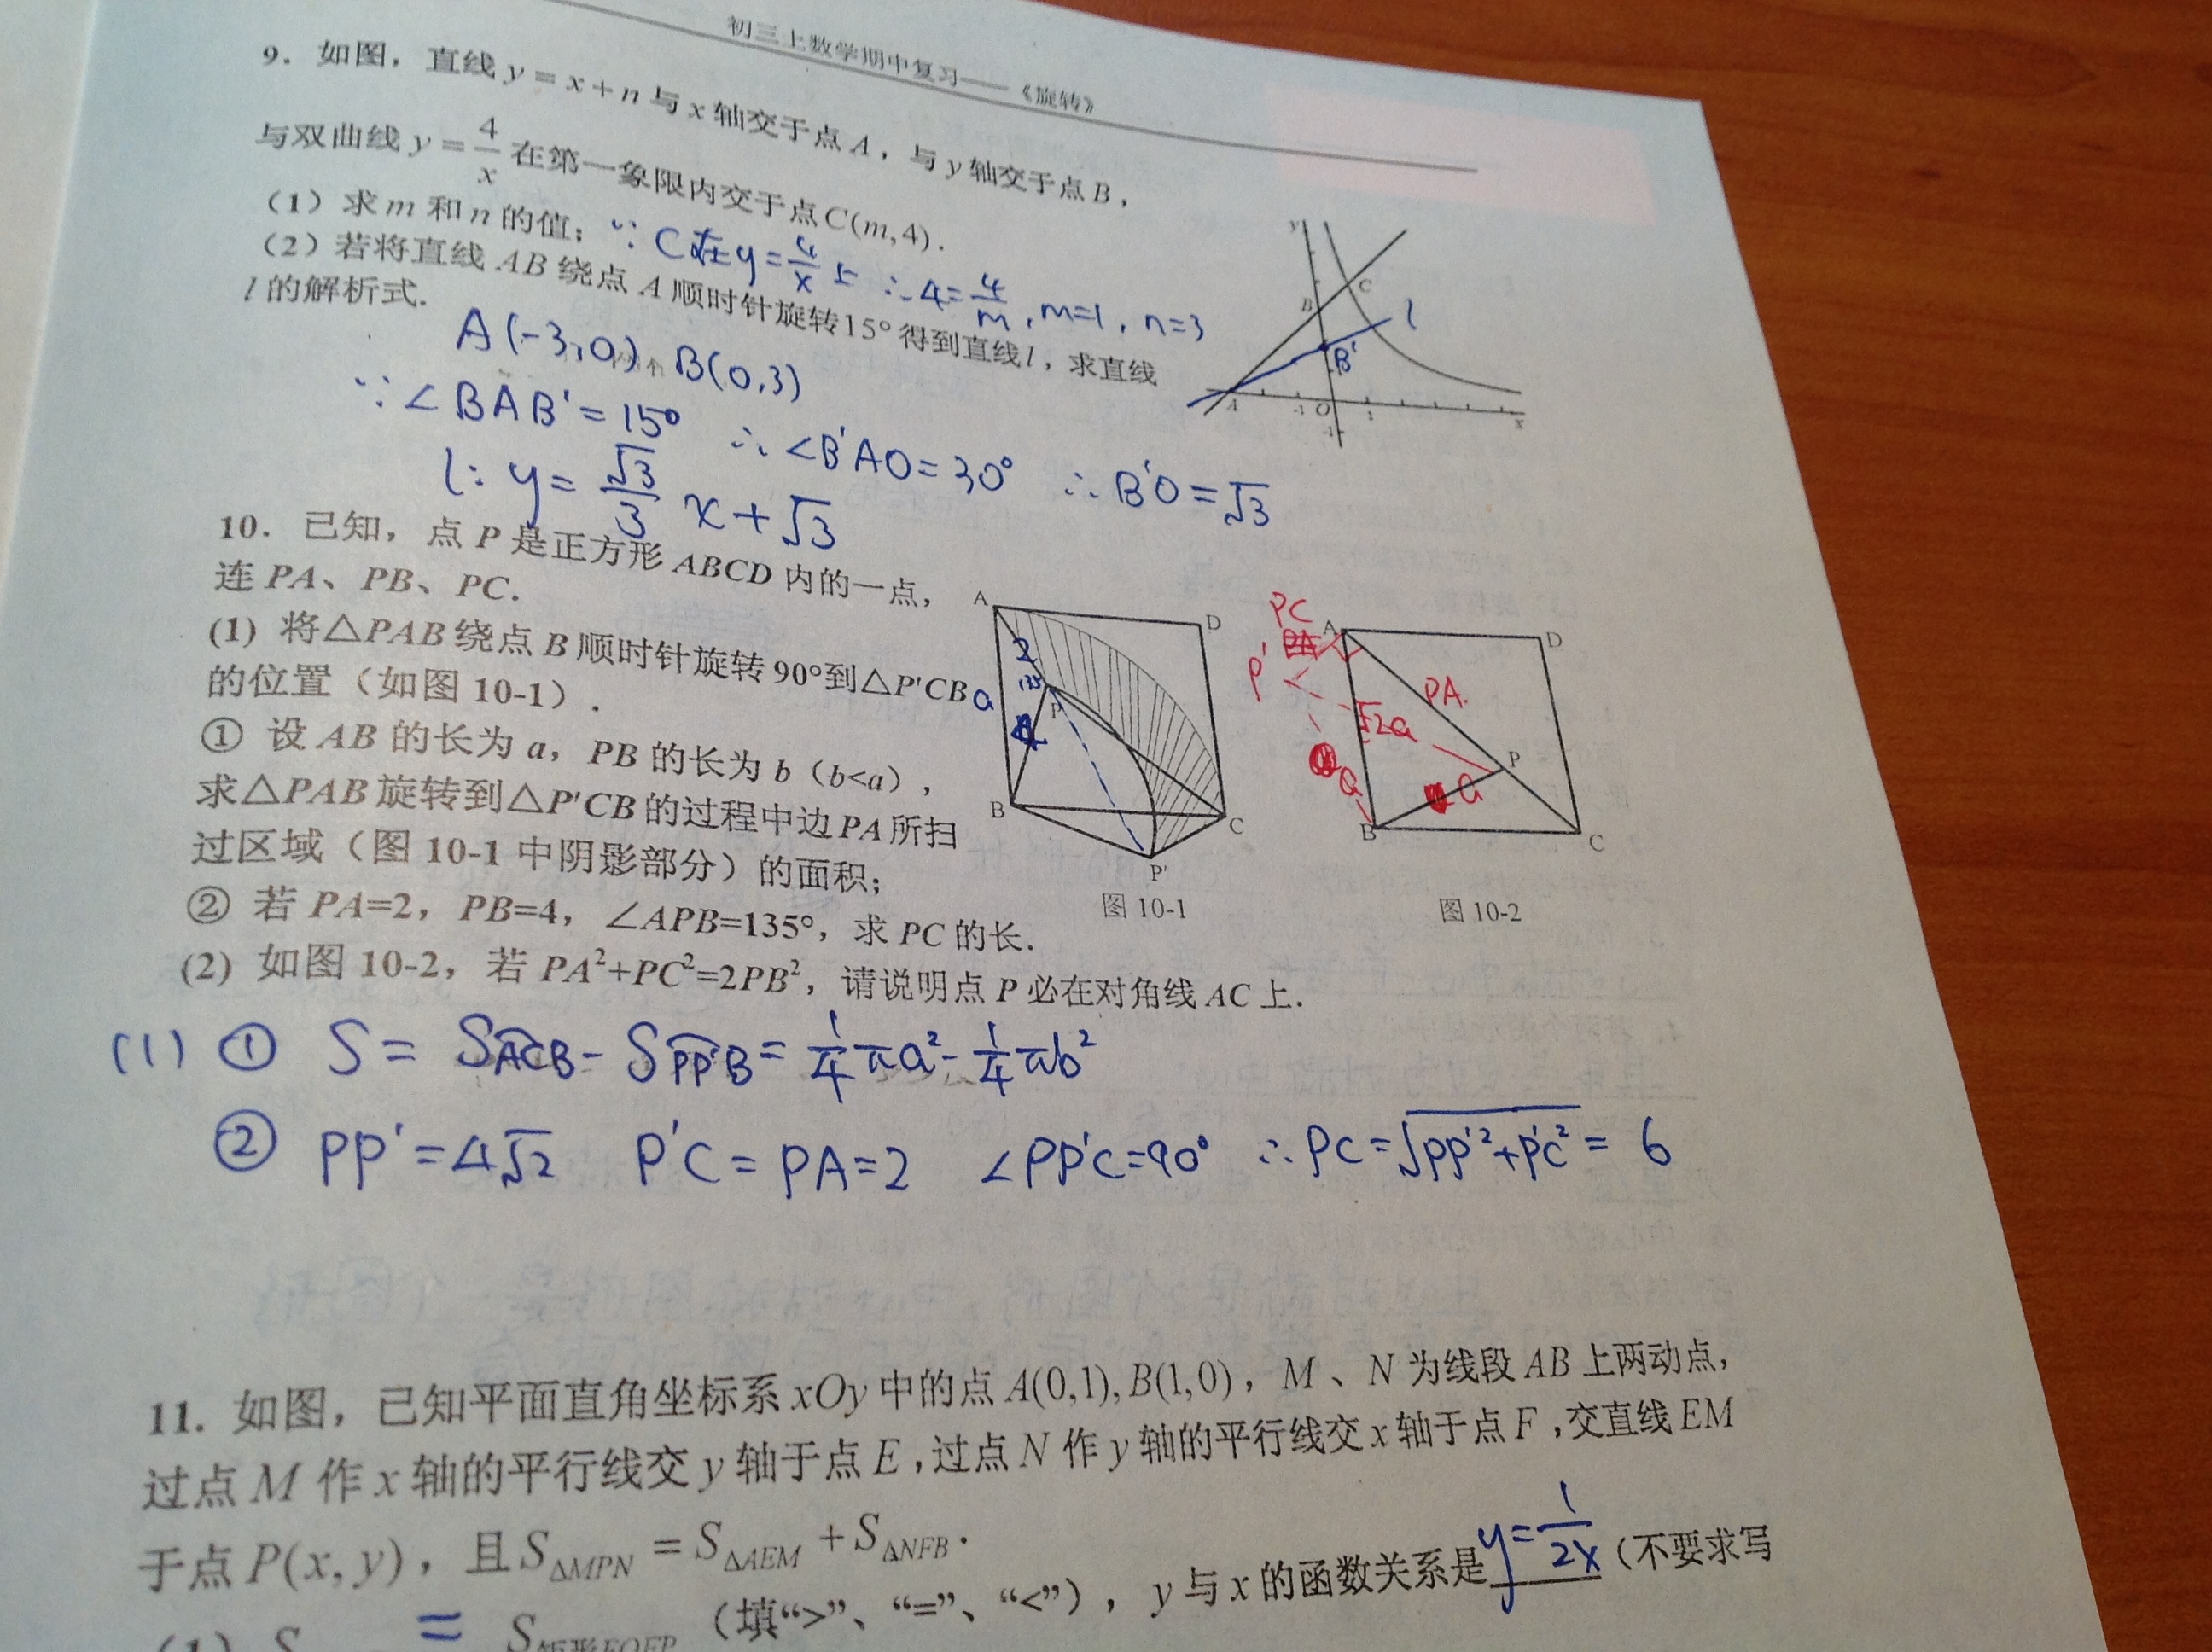 初三上数学期中复习——《旋转》
9. 如图，直线 y = x + n 与 x 轴交于点 A，与 y 轴交于点 B，
与双曲线 y = 4/x 在第一象限内交于点 C(m,4).
(1) 求 m 和 n 的值；
∵ C在 y = 4/x 上 ∴ 4 = 4/m , m=1, n=3
(2) 若将直线 AB 绕点 A 顺时针旋转15° 得到直线 l，求直线
l 的解析式.
A(-3,0) B(0,3)
∵ ∠BAB' = 15° ∴ ∠B'AO = 30° ∴ B'O = √3
l: y = √3/3 x + √3
y
B
C
l
B'
A
-1
O
1
-1
x
10. 已知，点 P 是正方形 ABCD 内的一点，
连 PA、PB、PC.
(1) 将△PAB 绕点 B 顺时针旋转 90°到△P'CB
的位置（如图 10-1）.
① 设 AB 的长为 a，PB 的长为 b（b<a），
求△PAB 旋转到△P'CB 的过程中边 PA 所扫
过区域（图 10-1 中阴影部分）的面积；
② 若 PA=2，PB=4，∠APB=135°，求 PC 的长.
(2) 如图 10-2，若 PA²+PC²=2PB²，请说明点 P 必在对角线 AC 上.
A
D
2
135
a
P
4
B
C
P'
图 10-1
PC
A
D
P'
PA
√2a
P
a
a
B
C
图 10-2
(1) ① S = S ACB - S PP'B = 1/4 πa² - 1/4 πb²
② PP' = 4√2 P'C = PA = 2 ∠PP'C = 90° ∴ PC = √PP'²+P'C² = 6
11. 如图，已知平面直角坐标系 xOy 中的点 A(0,1), B(1,0)，M、N 为线段 AB 上两动点，
过点 M 作 x 轴的平行线交 y 轴于点 E，过点 N 作 y 轴的平行线交 x 轴于点 F，交直线 EM
于点 P(x, y)，且 S△MPN = S△AEM + S△NFB.
(1) S = S矩形EOFP（填“>”、“=”、“<”），y 与 x 的函数关系是 y = 1/2x（不要求写